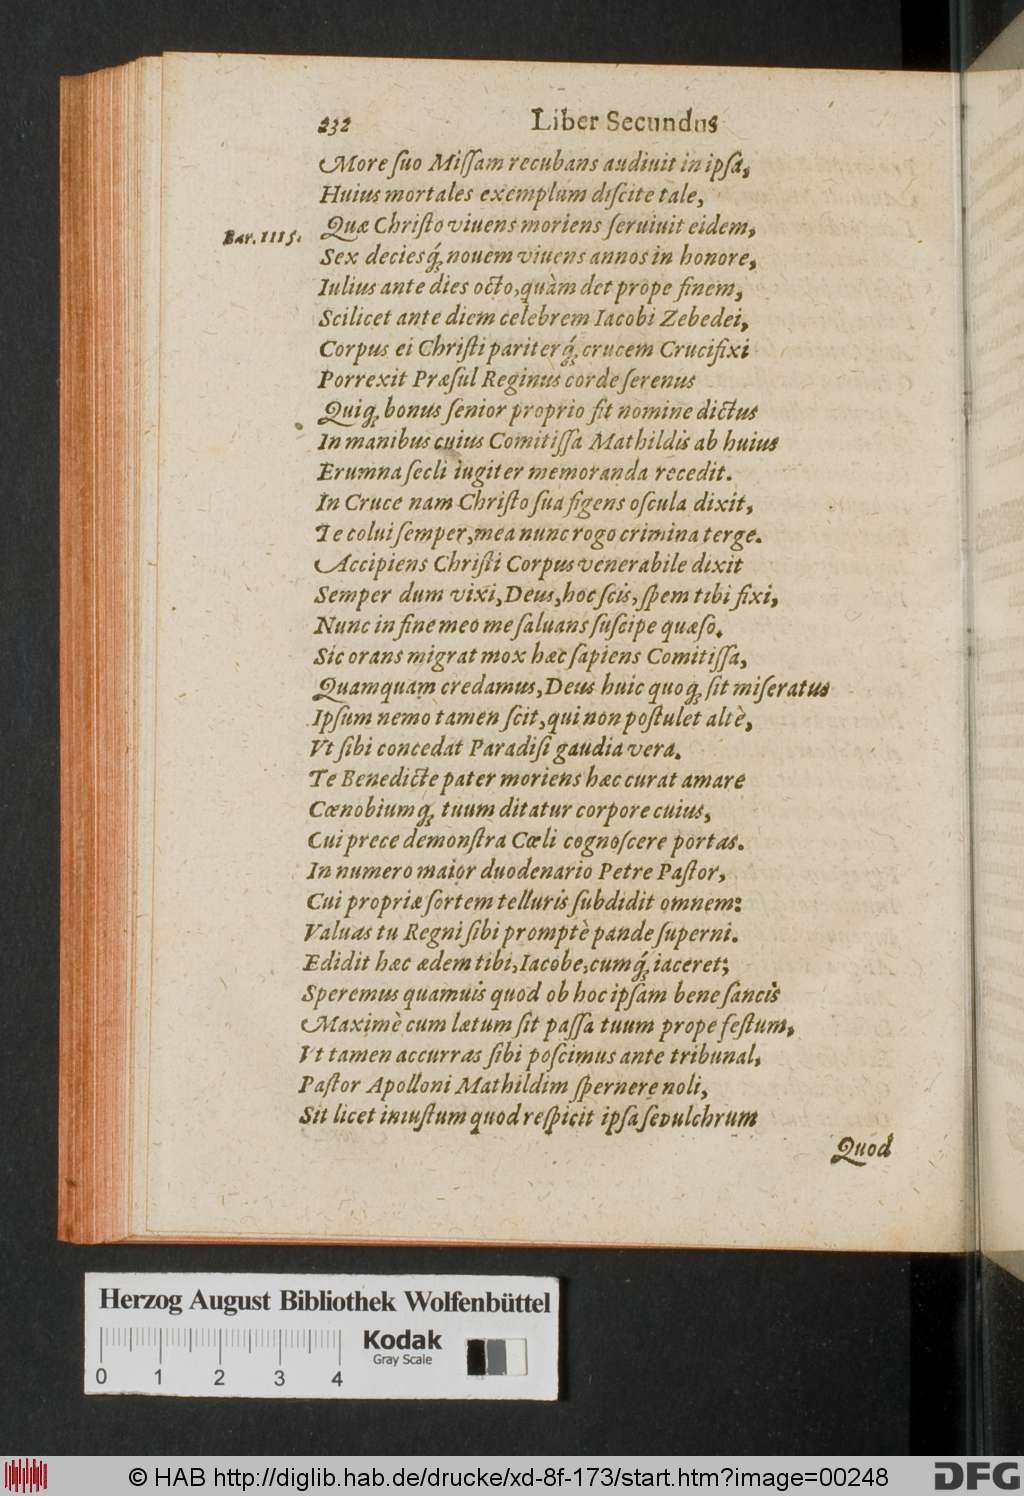 232 Liber Secundus
More ſuo Miſſam recubans audiuit in ipſa,
Huius mortales exemplum diſcite tale,
Quæ Chriſto viuens moriens ſeruiuit eidem,
Bar. 1115.
Sex deciesq́; nouem viuens annos in honore,
Iulius ante dies octo, quàm det prope finem,
Scilicet ante diem celebrem Iacobi Zebedei,
Corpus ei Chriſti pariterq́; crucem Crucifixi
Porrexit Præſul Reginus corde ſerenus
Quiq; bonus ſenior proprio fit nomine dictus
In manibus cuius Comitiſſa Mathildis ab huius
Erumna ſecli iugiter memoranda recedit.
In Cruce nam Chriſto ſua figens oſcula dixit,
Te colui ſemper, mea nunc rogo crimina terge.
Accipiens Chriſti Corpus venerabile dixit
Semper dum vixi, Deus, hoc ſcis, ſpem tibi fixi,
Nunc in fine meo me ſaluans ſuſcipe quæſo.
Sic orans migrat mox hæc ſapiens Comitiſſa,
Quamquam credamus, Deus huic quoq; ſit miſeratus
Ipſum nemo tamen ſcit, qui non poſtulet altè,
Vt ſibi concedat Paradiſi gaudia vera.
Te Benedicte pater moriens hæc curat amare
Cœnobiumq; tuum ditatur corpore cuius,
Cui prece demonſtra Cœli cognoſcere portas.
In numero maior duodenario Petre Paſtor,
Cui propriæ ſortem telluris ſubdidit omnem:
Valuas tu Regni ſibi promptè pande ſuperni.
Edidit hæc ædem tibi, Iacobe, cumq́; iaceret;
Speremus quamuis quod ob hoc ipſam bene ſancis
Maximè cum lætum ſit paſſa tuum prope feſtum,
Vt tamen accurras ſibi poſcimus ante tribunal,
Paſtor Apolloni Mathildim ſpernere noli,
Sit licet iniuſtum quod reſpicit ipſa ſepulchrum
Quod
Herzog August Bibliothek Wolfenbüttel
Kodak
Gray Scale
0 1 2 3 4
© HAB http://diglib.hab.de/drucke/xd-8f-173/start.htm?image=00248
DFG